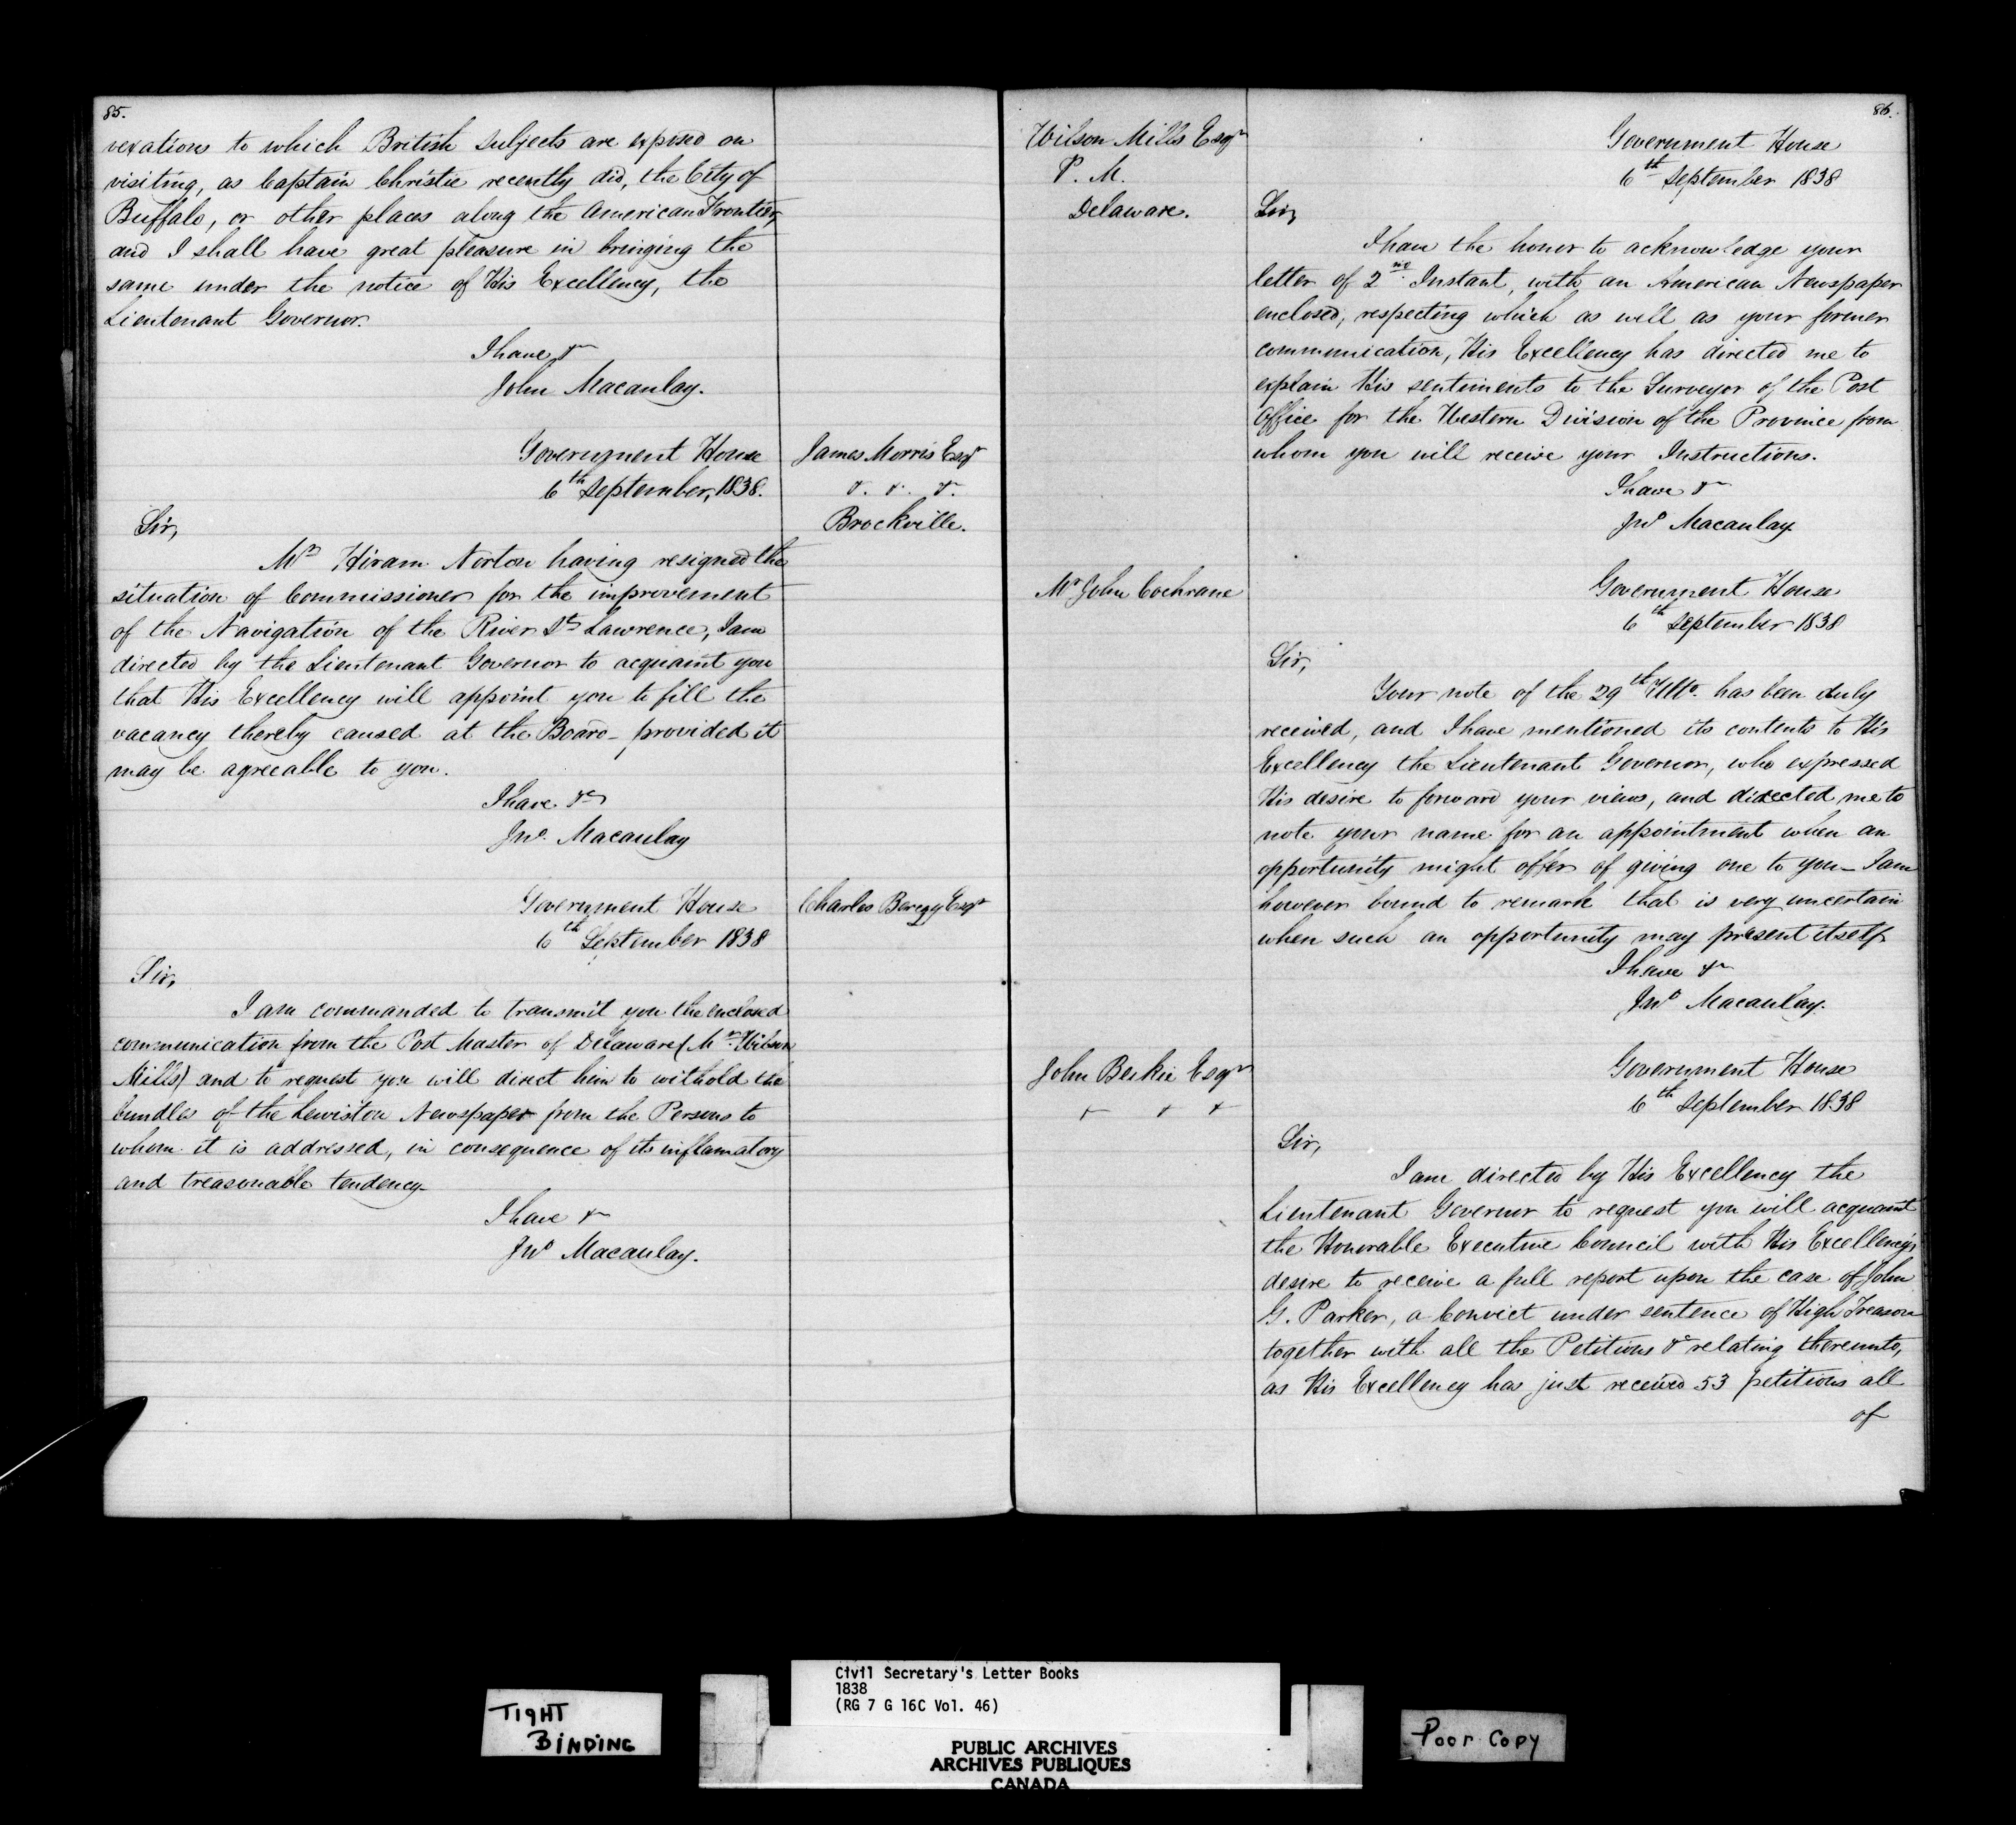 85.
vexations to which British Subjects are exposed on
visiting, as Captain Christie recently did, the City of
Buffalo, or other places along the American Frontier,
and I shall have great pleasure in bringing the
same under the notice of His Excellency, the
Lieutenant Governor.
I have &c
John Macaulay.
Government House
6th September, 1838.
James Morris Esqr
&. &. &.
Brockville.
Sir,
Mr Hiram Norton having resigned the
situation of Commissioner for the improvement
of the Navigation of the River St Lawrence, I am
directed by the Lieutenant Governor to acquaint you
that His Excellency will appoint you to fill the
vacancy thereby caused at the Board - provided it
may be agreeable to you.
I have &c
Jno. Macaulay
Government House
6th September 1838
Charles Berczy Esqr
Sir,
I am commanded to transmit you the enclosed
communication from the Post Master of Delaware (Mr. Wilson
Mills) and to request you will direct him to withold the
bundles of the Lewiston Newspaper from the Persons to
whom it is addressed, in consequence of its inflamatory
and treasonable tendency.
I have &c
Jno Macaulay.
86.
Wilson Mills Esqr
P. M.
Delaware.
Government House
6th September 1838
Sir,
I have the honor to acknowledge your
letter of 2nd Instant, with an American Newspaper
enclosed, respecting which as well as your former
communication, His Excellency has directed me to
explain His sentiments to the Surveyor of the Post
Office for the Western Division of the Province from
whom you will receive your Instructions.
I have &c
Jno Macaulay.
Mr John Cochrane
Government House
6th September 1838
Sir,
Your note of the 29th Ulto. has been duly
received, and I have mentioned its contents to His
Excellency the Lieutenant Governor, who expressed
His desire to forward your views, and directed me to
note your name for an appointment when an
opportunity might offer of giving one to you - I am
however bound to remark that is very uncertain
when such an opportunity may present itself.
I have &c
Jno Macaulay.
John Beikie Esqr
& & &
Government House
6th September 1838
Sir,
I am directed by His Excellency the
Lieutenant Governor to request you will acquaint
the Honorable Executive Council with His Excellency's
desire to receive a full report upon the case of John
G. Parker, a Convict under sentence of High Treason
together with all the Petitions &c relating thereunto,
as His Excellency has just received 53 petitions all
of
TIGHT
BINDING
Civil Secretary's Letter Books
1838
(RG 7 G 16C Vol. 46)
PUBLIC ARCHIVES
ARCHIVES PUBLIQUES
CANADA
Poor Copy